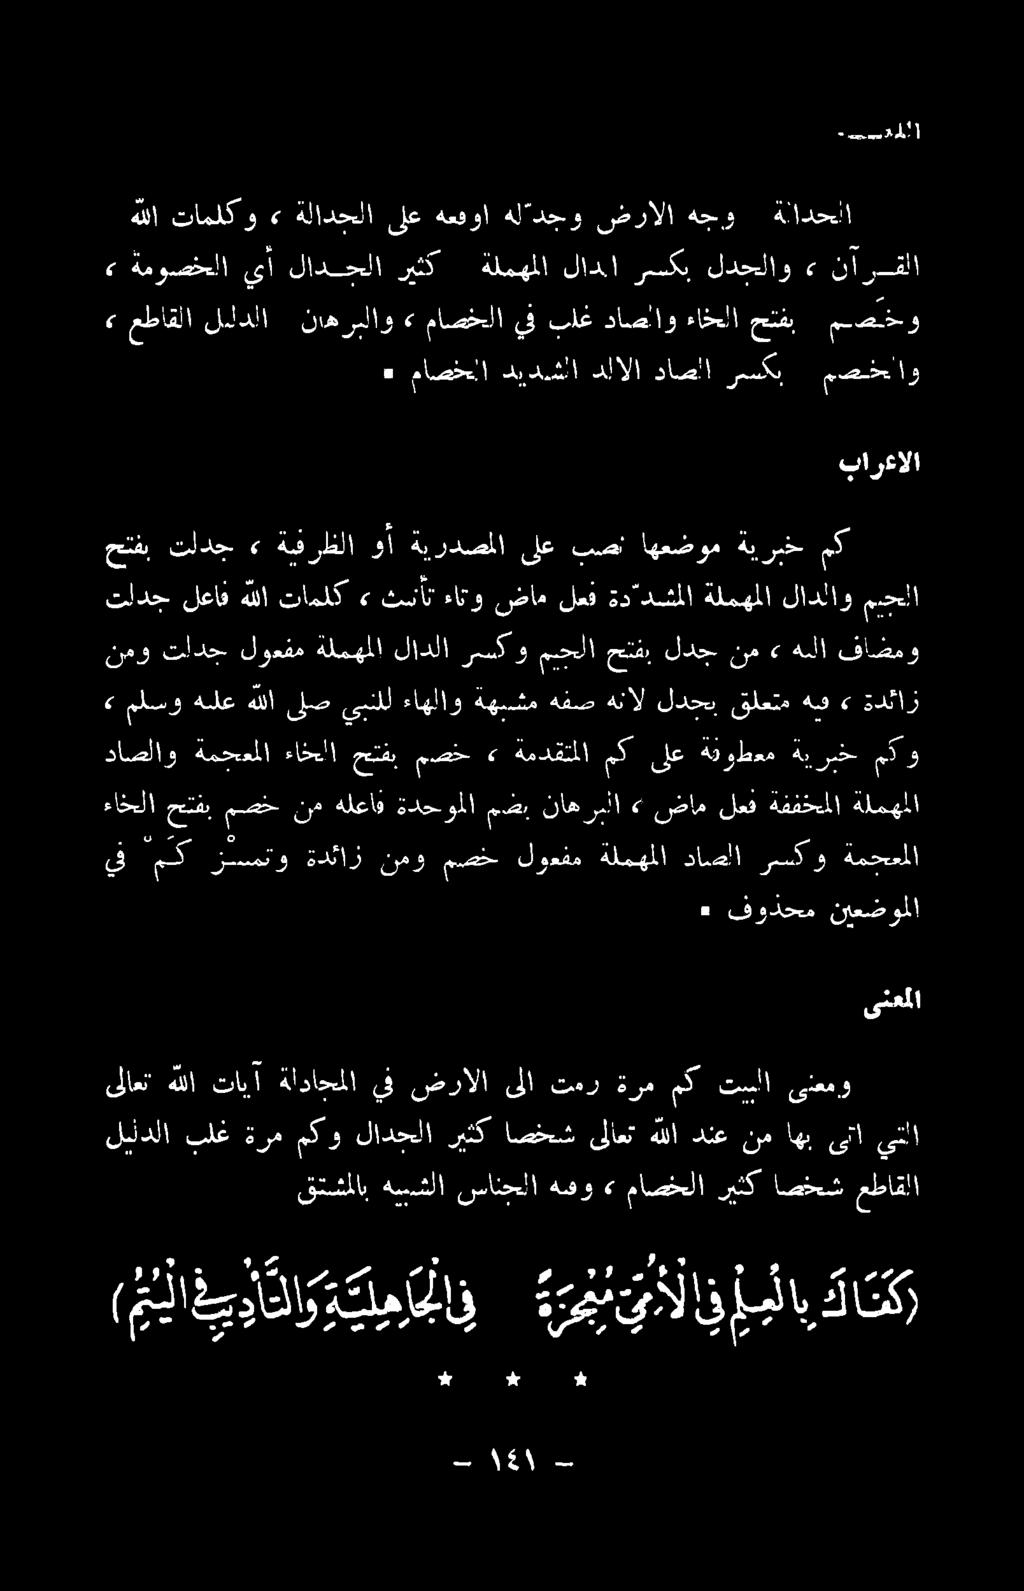 اللغـــة
الجدالة وجه الارض وجدّله اوقعه على الجدالة ، وكلمات الله
القـرآن ، والجدل بكسر الدال المهملة كثير الجـدال أي الخصومة ،
وخَصـم بفتح الخاء والصاد غلب في الخصام ، والبرهان الدليل القاطع ،
والخـصم بكسر الصاد الالد الشديد الخصام ▪
الاعراب
كم خبرية موضعها نصب على المصدرية أو الظرفية ، جدلت بفتح
الجيم والدال المهملة المشدّدة فعل ماض وتاء تأنيث ، كلمات الله فاعل جدلت
ومضاف اليه ، من جدل بفتح الجيم وكسر الدال المهملة مفعول جدلت ومن
زائدة ، فيه متعلق بجدل لانه صفه مشبهة والهاء للنبي صلى الله عليه وسلم ،
وكم خبرية معطوفة على كم المتقدمة ، خصم بفتح الخاء المعجمة والصاد
المهملة المخففة فعل ماض ، البرهان بضم الموحدة فاعله من خصم بفتح الخاء
المعجمة وكسر الصاد المهملة مفعول خصم ومن زائدة وتمييز كَـمْ في
الموضعين محذوف ▪
المعنى
ومعنى البيت كم مرة رمت الى الارض في المجادلة آيات الله تعالى
التي اتى بها من عند الله تعالى شخصا كثير الجدال وكم مرة غلب الدليل
القاطع شخصا كثير الخصام ، وفيه الجناس الشبيه بالمشتق
(كَفَاكَ بِالْعِلْمِ فِي الْأُمِّيِّ مُعْجِزَةً فِي الْجَاهِلِيَّةِ وَالتَّأْدِيبِ فِي الْيُتُمِ)
★ ★ ★
– ١٤١ –